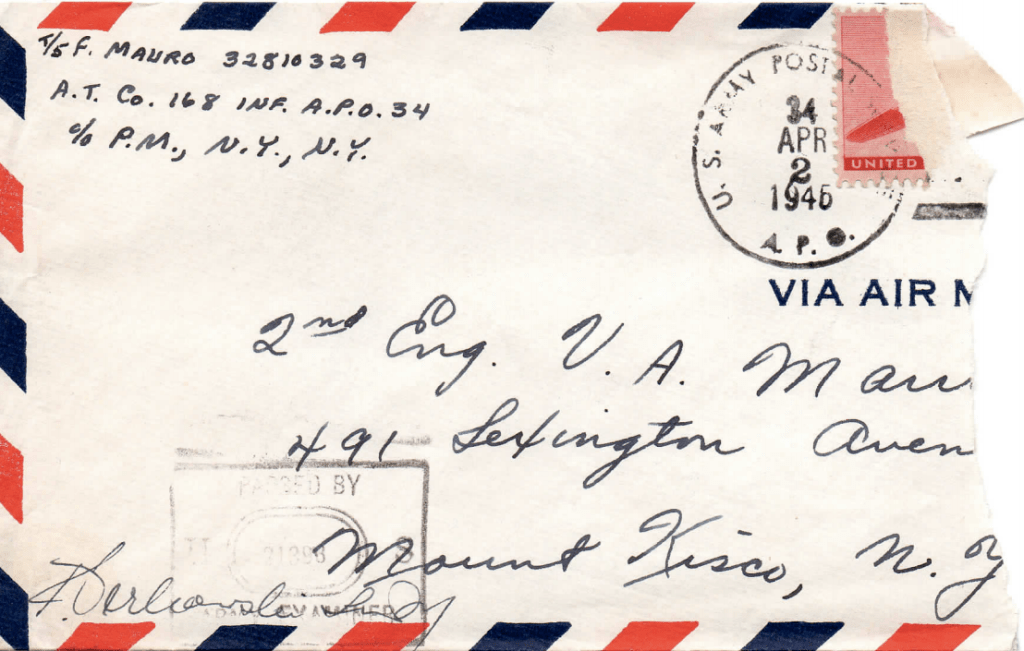 T/5 F. MAURO 32810329
A.T. Co. 168 INF. A.P.O. 34
c/o P.M., N.Y., N.Y.
U.S. ARMY POSTAL
34
APR
2
1945
A.P.O.
UNITED
VIA AIR M
2nd Eng. V. A. Mau
491 Lexington Aven
Mount Kisco, N. Y
PASSED BY
U S
ARMY EXAMINER